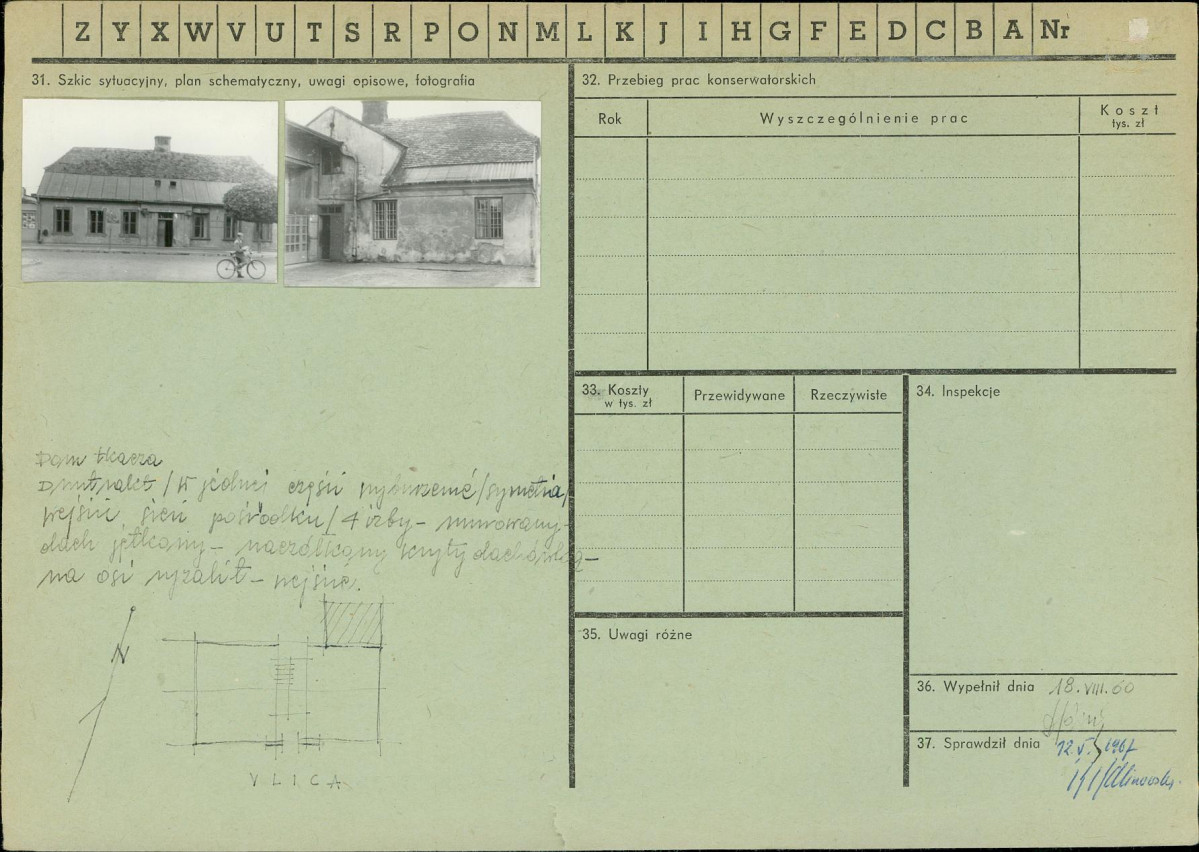 Z Y X W V U T S R P O N M L K J I H G F E D C B A Nr
31. Szkic sytuacyjny, plan schematyczny, uwagi opisowe, fotografia
Dom tkacza
Dwutrakt / w jednej części wyburzone / symetria,
wejście, sień pośrodku / 4 izby – murowany –
dach jętkowy – naczółkowy kryty dachówką –
na osi ryzalit – wejście.
N
ULICA
32. Przebieg prac konserwatorskich
Rok
Wyszczególnienie prac
Koszt
tys. zł
33. Koszty
w tys. zł
Przewidywane
Rzeczywiste
34. Inspekcje
35. Uwagi różne
36. Wypełnił dnia 18.VIII.60
37. Sprawdził dnia 12.V.